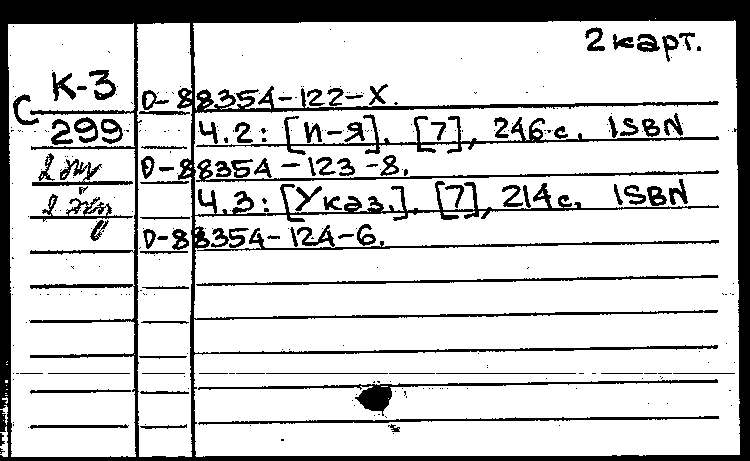 2 карт.
С К-3 0-88354-122-X.
299 Ч.2: [И-Я]. [7], 246 с. ISBN
2 экз 0-88354-123-8.
Ч.3: [Указ.]. [7], 214 с. ISBN
0-88354-124-6.